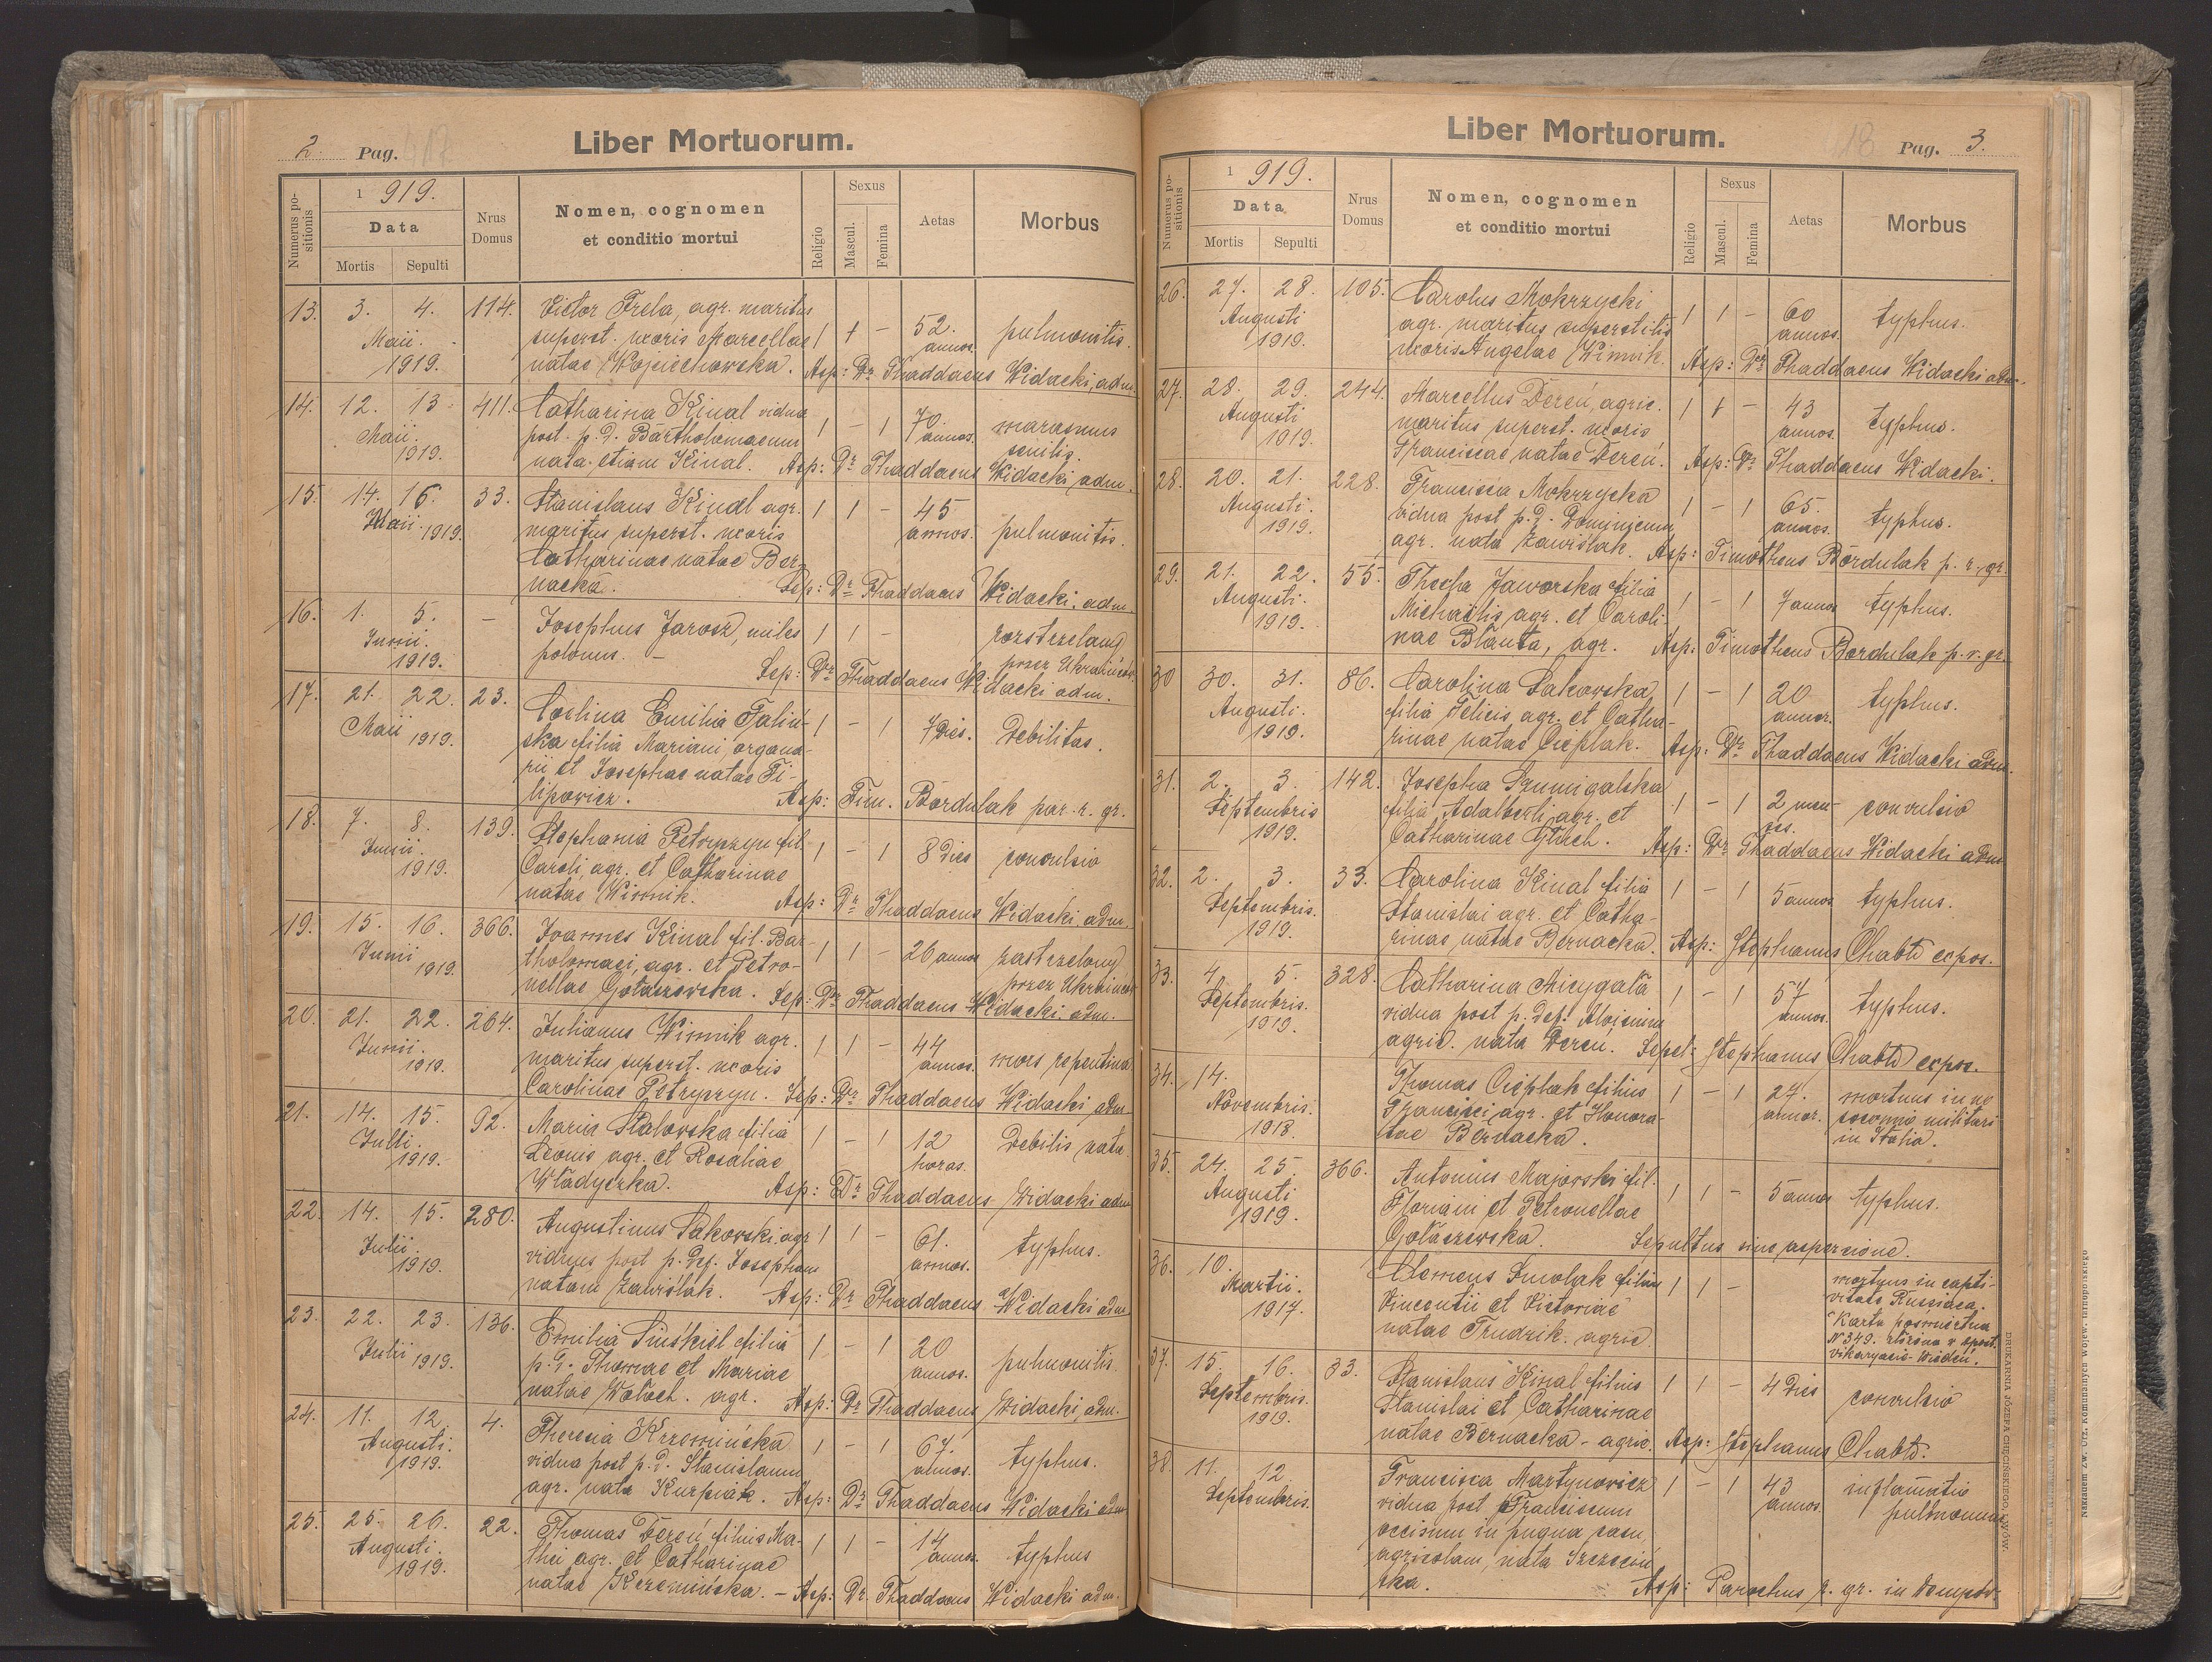 2. Pag. 417
Liber Mortuorum.
Numerus positionis
1919.
Data
Mortis Sepulti
Nrus Domus
Nomen, cognomen
et conditio mortui
Religio
Sexus
Mascul. Femina
Aetas
Morbus
13. 3. 4. 114. Victor Frela, agr. maritus
Maii. superst. uxoris Marcellae 1 1 - 52. annos. pulmonitis.
1919. natae Wojciechowska. Asp: Dr Thaddaeus Widacki, adm.
14. 12. 13. 411. Catharina Kinal vidua
Maii. post. p. d. Bartholomaeum 1 - 1 70 annos. marasmus senilis.
1919. nata etiam Kinal. Asp: Dr Thaddaeus Widacki adm.
15. 14. 16. 33. Stanislaus Kinal agr. 1 1 - 45
Maii. 1919. maritus superst. uxoris annos. pulmonitis.
Catharinae natae Ber-
nacka. Sep: Dr Thaddaeus Widacki, adm.
16. 1. 5. - Josephus Jarosz, miles 1 1 - rozstrzelany
Junii. polonus. - przez Ukraińców.
1919. Sep: Dr Thaddaeus Widacki adm.
17. 21. 22. 23. Coelina Emilia Taliń- 1 - 1 7 dies. Debilitas.
Maii 1919. ska filia Mariani, organa-
rii et Josephae natae Fi-
lipowicz. Asp: Tim. Bordulak par. r. gr.
18. 7. 8. 139. Stephania Petryszyn fil.
Junii. Caroli, agr. et Catharinae 1 - 1 8 dies convulsio
1919. natae Winnik. Asp: Dr Thaddaeus Widacki adm.
19. 15. 16. 366. Joannes Kinal fil. Bar-
Junii tholomaei, agr. et Petro- 1 1 - 26 annos zastrzelony
1919. nellae Gołaszewska. przez Ukraińców
Sep: Dr Thaddaeus Widacki adm.
20. 21. 22. 264. Julianus Winnik agr.
Junii. maritus superst. uxoris 1 1 - 44 annos. mors repentina
1919. Carolinae Petryszyn. Sep: Dr Thaddaeus Widacki adm.
21. 14. 15. 92. Maria Stalowska filia
Julii. Leonis agr. et Rosaliae 1 - 1 12 horas. Debilis nata
1919. Władyczka. Asp: Dr Thaddaeus Widacki adm
22. 14. 15. 280. Augustinus Sakowski agr 1 1 - 61.
Julii. viduus post p. def. Josepham annos. typhus.
1919. natam Zawiślak. Asp: Dr Thaddaeus Widacki adm
23. 22. 23. 136. Emilia Siuśkiel filia
Julii 1919. p. d. Thomae et Mariae 1 - 1 20 annos. pulmonitis.
natae Wołoch. agr. Asp: Dr Thaddaeus Widacki, adm.
24. 11. 12. 4. Theresia Krzemińska
Augusti. vidua post p. d. Stanislaum 1 - 1 67. annos. typhus.
1919. agr. nata Kurpiak. Asp: Dr Thaddaeus Widacki adm
25. 25. 26. 22. Thomas Dereń filius Ma-
Augusti. thei agr. et Catharinae 1 1 - 14 annos. typhus
1919. natae Krzemińska. - Asp: Dr. Thaddaeus Widacki adm.
Liber Mortuorum.
418 Pag. 3.
Numerus positionis
1919.
Data
Mortis Sepulti
Nrus Domus
Nomen, cognomen
et conditio mortui
Religio
Sexus
Mascul. Femina
Aetas
Morbus
26. 27. 28. 105. Carolus Mokrzycki
Augusti agr. maritus superstitis 1 1 - 60 annos. typhus.
1919. uxoris Angelae Winnik. Asp: Dr Thaddaeus Widacki adm.
27. 28. 29. 244. Marcellus Dereń, agric.
Augusti maritus superst. uxoris 1 1 - 43 annos. typhus.
1919. Franciscae natae Dereń. Asp: Dr Thaddaeus Widacki.
28. 20. 21. 228. Francisca Mokrzycka
Augusti. vidua post p. d. Dominicum 1 - 1 65. annos. typhus.
1919. agr. nata Zawiślak. Asp: Timotheus Bordulak p. r. gr.
29. 21. 22. 55. Thecla Jaworska filia
Augusti. Michaelis, agr. et Caroli- 1 - 1 7 annos typhus.
1919. nae Blauta, agr. Asp: Timotheus Bordulak p. r. gr.
30 30. 31. 86. Carolina Sakowska
Augusti. filia Felicis, agr. et Catha- 1 - 1 20 annor. typhus.
1919. rinae natae Cieplak. Asp: Dr Thaddaeus Widacki adm.
31. 2. 3. 142. Josepha Szumigalska
Septembris filia Adalberti, agr. et 1 - 1 2 men- ses. convulsio
1919. Catharinae Głuch. Asp: Dr Thaddaeus Widacki adm
32. 2. 3. 33. Carolina Kinal filia 1 - 1 5 annos typhus.
Septembris. Stanislai agr. et Catha-
1919. rinae natae Bernacka. Asp: Stephanus Chabło expos.
33. 4. 5. 328. Catharina Micygała
Septembris. vidua post p. def. Aloisium 1 - 1 57 annos. typhus.
1919. agric. nata Dereń. Sepel: Stephanus Chabło expos.
34. 14. Thomas Cieplak filius
Novembris. Francisci, agr. et Honora- 1 - 1 27. annor. mortuus in no
1918. tae Bernacka. socomio militari
in Italia.
35. 24. 25. 366. Antonius Majorski fil.
Augusti Floriani et Petronellae 1 1 - 5 annos typhus.
1919. Gołaszewska. Sepultus sine aspersione.
36. 10. Clemens Smolak filius 1 1 - mortuus in capti-
Martii. Vincentii et Victoriae vitate Russiaca.
1917. natae Trudzik. agric. Karta pośmiertna
N 349. złożona v. apost.
vikaryacie - Wiedeń.
37. 15. 16. 33. Stanislaus Kinal filius 1 1 - 4 dies
Septembris. Stanislai et Catharinae convulsio
1919. natae Bernacka - agric. Asp: Stephanus Chabło.
38. 11. 12. Francisca Martynowicz 1 - 1 43 annos. inflamatio
Septembris. vidua post Franciscum pulmonum
occisum in pugna casu,
agricolam, nata Szczeciń
ska. Asp: Parochus r. gr. in
DRUKARNIA JÓZEFA CHĘCIŃSKIEGO, LWÓW.
Nakładem Zw. Urz. Komunalnych Wojew. Tarnopolskiego